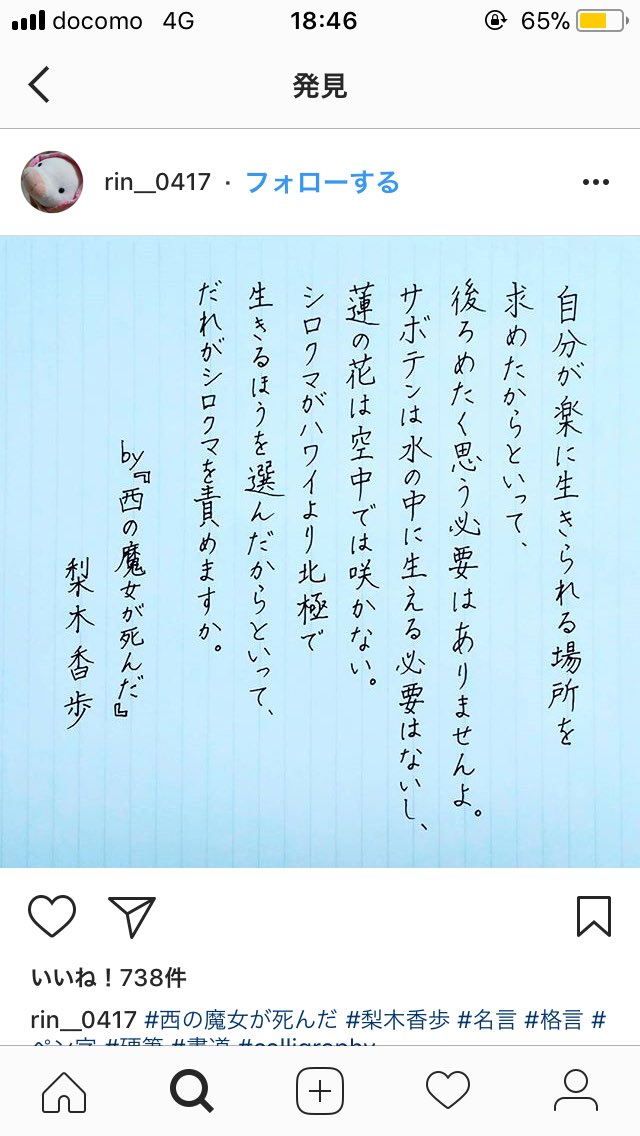 docomo 4G 18:46 65%
発見
rin__0417 · フォローする
自分が楽に生きられる場所を
求めたからといって、
後ろめたく思う必要はありませんよ。
サボテンは水の中に生える必要はないし、
蓮の花は空中では咲かない。
シロクマがハワイより北極で
生きるほうを選んだからといって、
だれがシロクマを責めますか。
by『西の魔女が死んだ』
梨木香歩
いいね！738件
rin__0417 #西の魔女が死んだ #梨木香歩 #名言 #格言 #
ペン字 #硬筆 #書道 #calligraphy